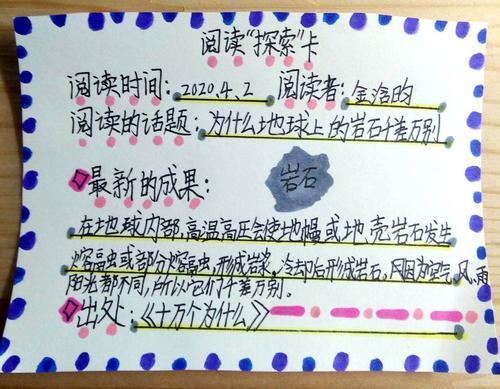 阅读“探索”卡
阅读时间：2020.4.2 阅读者：金浛昀
阅读的话题：为什么地球上的岩石千差万别
最新的成果：
岩石
在地球内部，高温高压会使地幔或地壳岩石发生
熔融或部分熔融，形成岩浆。冷却后形成岩石，因为空气、风、雨
阳光都不同，所以它们千差万别。
出处：《十万个为什么》